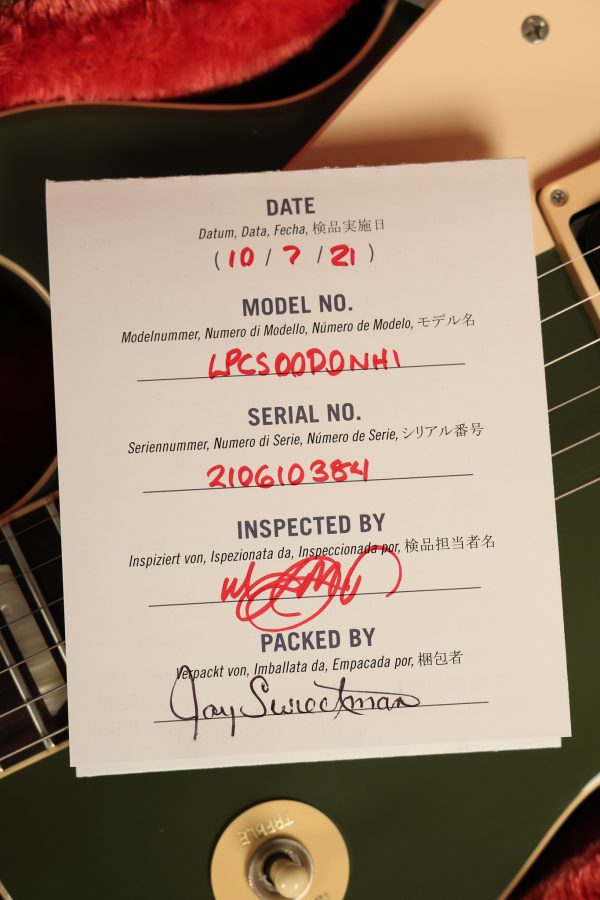 DATE
Datum, Data, Fecha, 検品実施日
( 10 / 7 / 21 )
MODEL NO.
Modelnummer, Numero di Modello, Número de Modelo, モデル名
LPCS00DONH1
SERIAL NO.
Seriennummer, Numero di Serie, Número de Serie, シリアル番号
210610384
INSPECTED BY
Inspiziert von, Ispezionata da, Inspeccionada por, 検品担当者名
PACKED BY
Verpackt von, Imballata da, Empacada por, 梱包者
Jay
TREBLE